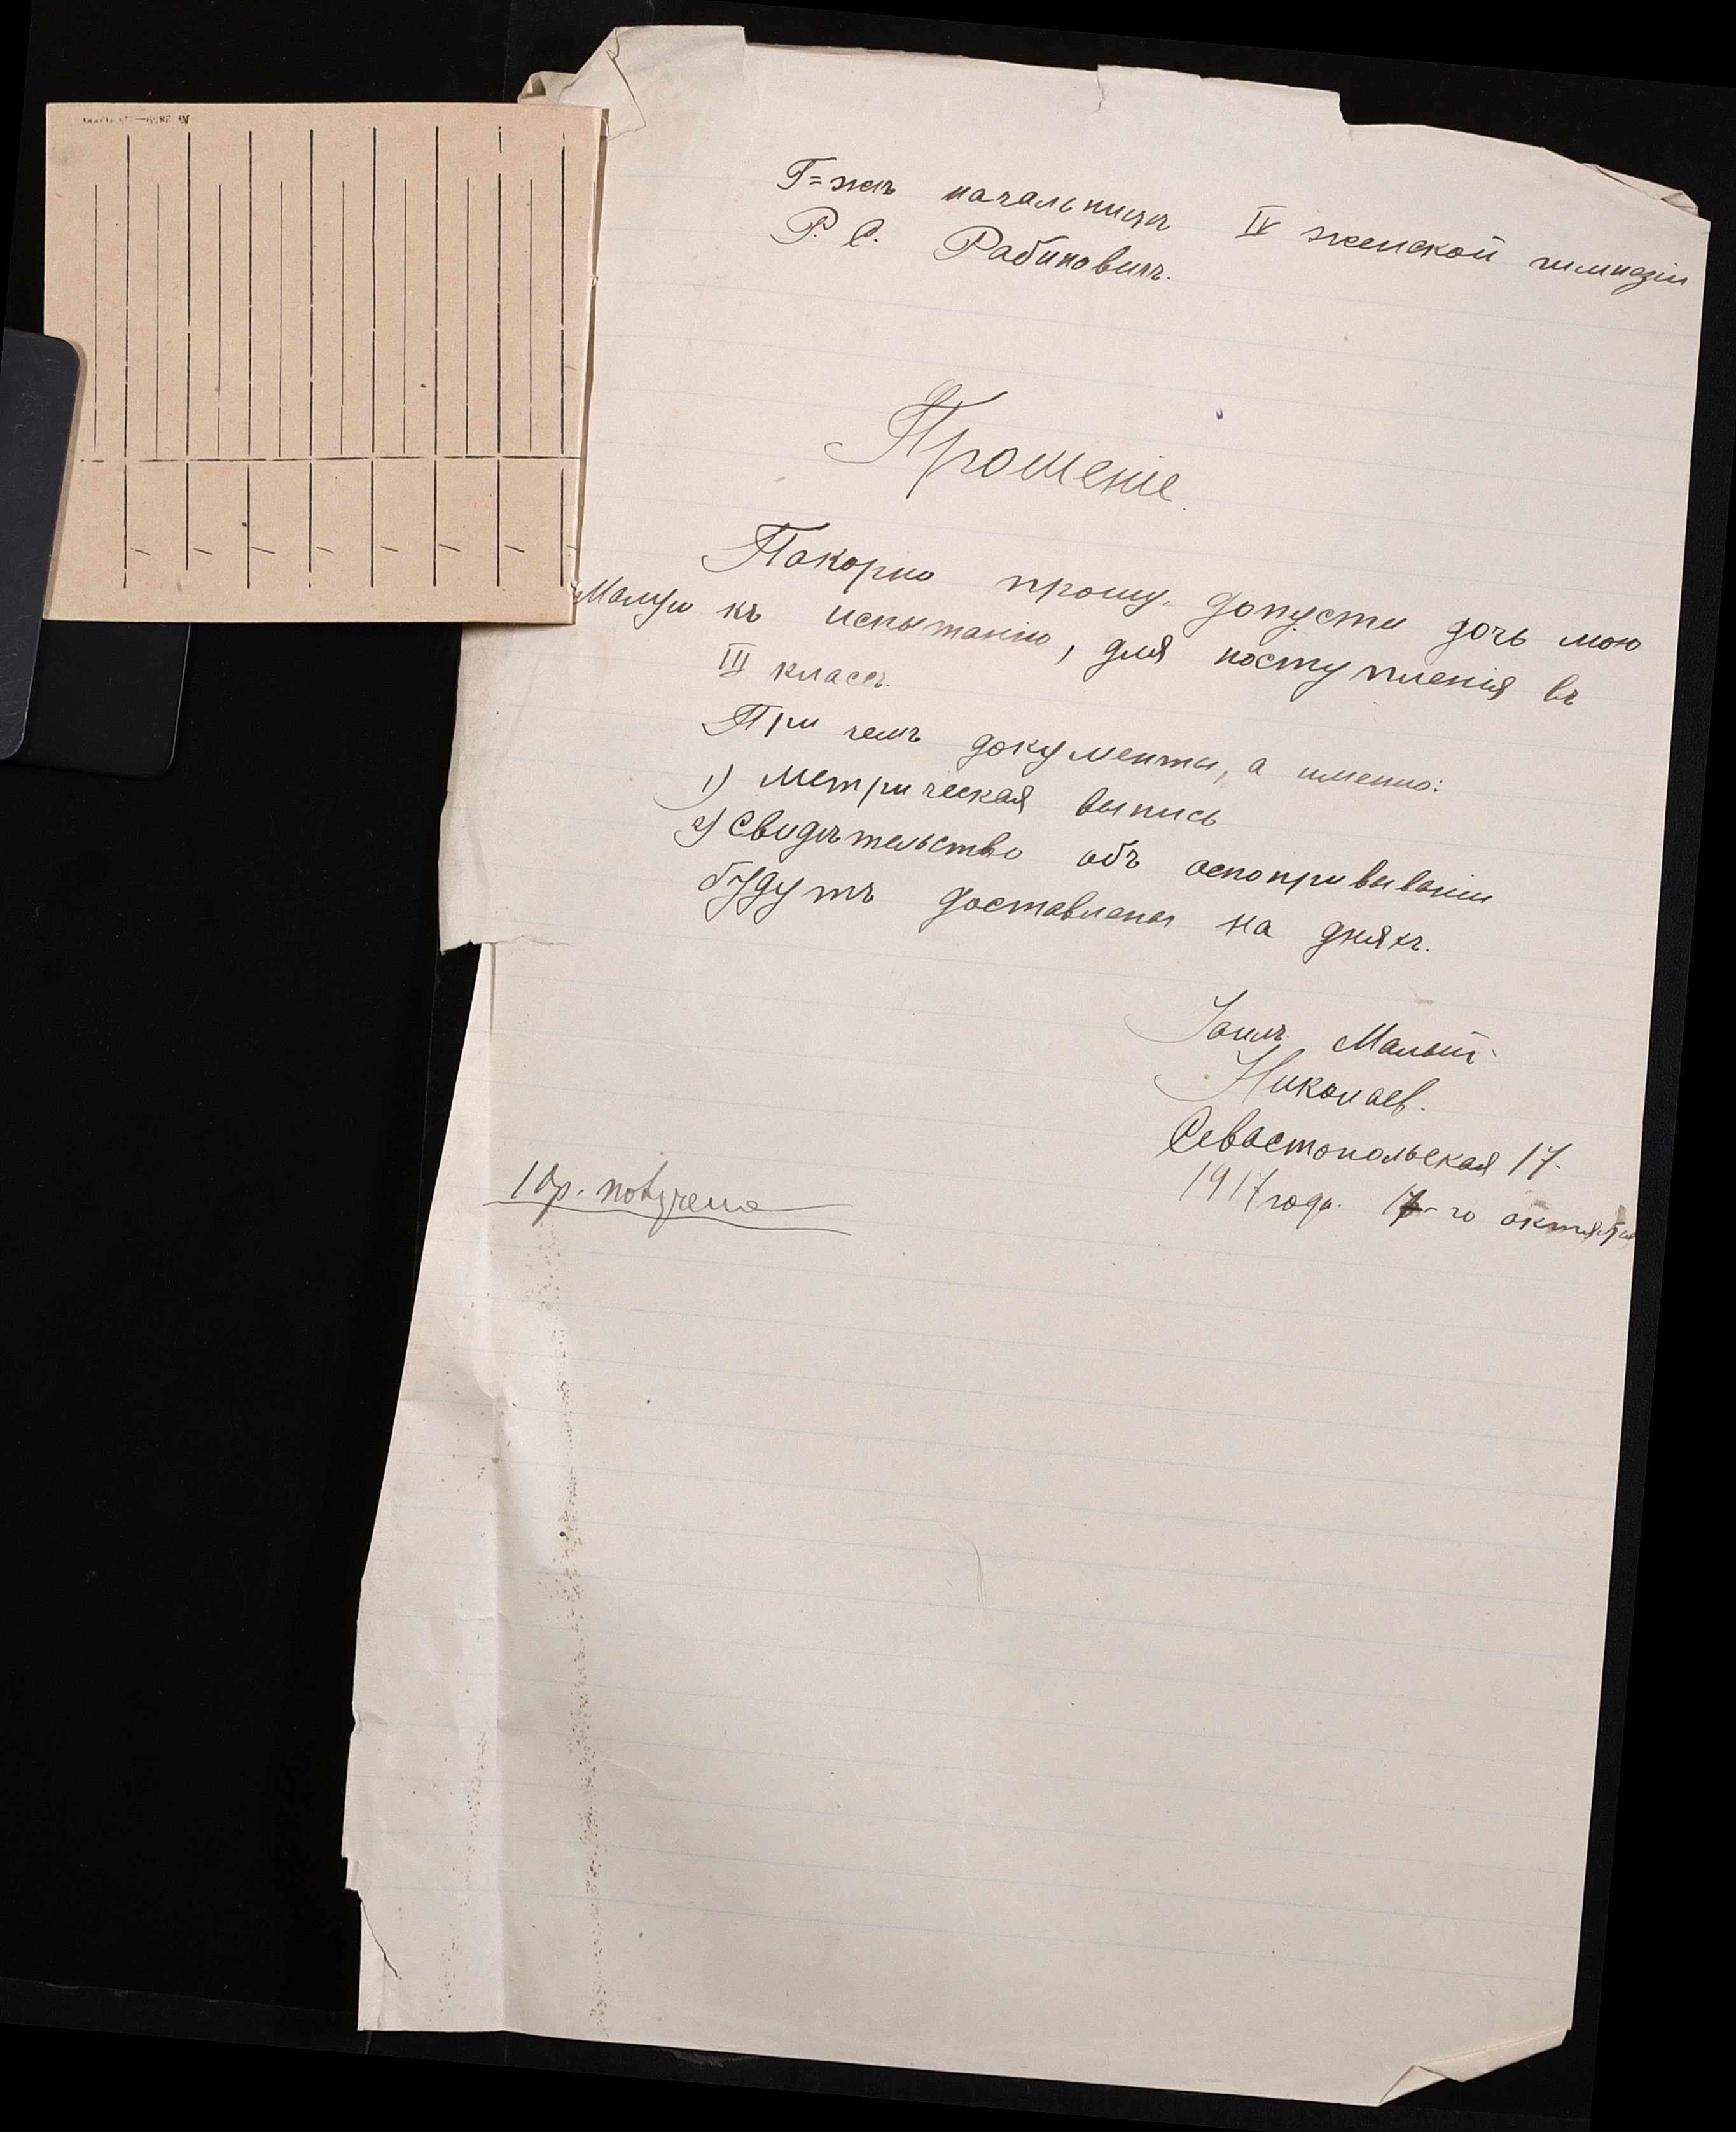 Г=жѣ начальницѣ IV женской гимназіи
Р. С. Рабиновичъ.
Прошеніе.
Покорно прошу допусти дочь мою
къ испытанію, для поступленія въ
III классъ.
При чемъ документы, а именно:
1) Метрическая выпись
2) Свидѣтельство объ оспопрививаніи
будутъ доставлены на дняхъ.
Іоиль Малый
Николаев.
Севастопольская 17.
1917 года. го октября
10р. получено